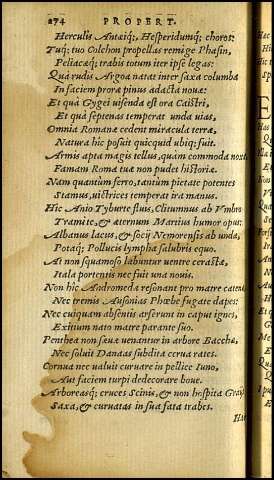 274 PROPERT.
Herculis Antæiq;, Hesperidumq; choros:
Tuq; tuo Colchon propellas remige Phasin,
Peliacæq; trabis totum iter ipse legas:
Quà rudis Argoa natat inter saxa columba
In faciem proræ pinus adacta nouæ:
Et quà Gygei uisenda est ora Caistri,
Et quà septenas temperat unda uias,
Omnia Romanæ cedent miracula terræ,
Natura hic posuit quicquid ubiq; fuit.
Armis apta magis tellus, quàm commoda noxæ
Famam Roma tuæ non pudet historiæ.
Nam quantum ferro, tantùm pietate potentes
Stamus, uictrices temperat ira manus.
Hic Anio Tyburte fluis, Clitumnus ab Vmbro
Tramite, & æternum Martius humor opus:
Albanus lacus, & socij Nemorensis ab unda,
Potaq; Pollucis lympha salubris equo.
At non squamoso labuntur uentre cerastæ,
Itala portentis nec fuit una nouis.
Non hic Andromedæ resonant pro matre catenæ
Nec tremis Ausonias Phœbe fugate dapes:
Nec cuiquam absentis arserunt in caput ignes,
Exitium nato matre parante suo.
Penthea non sæuæ uenantur in arbore Bacchæ,
Nec soluit Danaas subdita cerua rates.
Cornua nec ualuit curuare in pellice Iuno,
Aut faciem turpi dedecorare boue.
Arboreasq; cruces Scinis, & non hospita Graijs
Saxa, & curuatas in sua fata trabes.